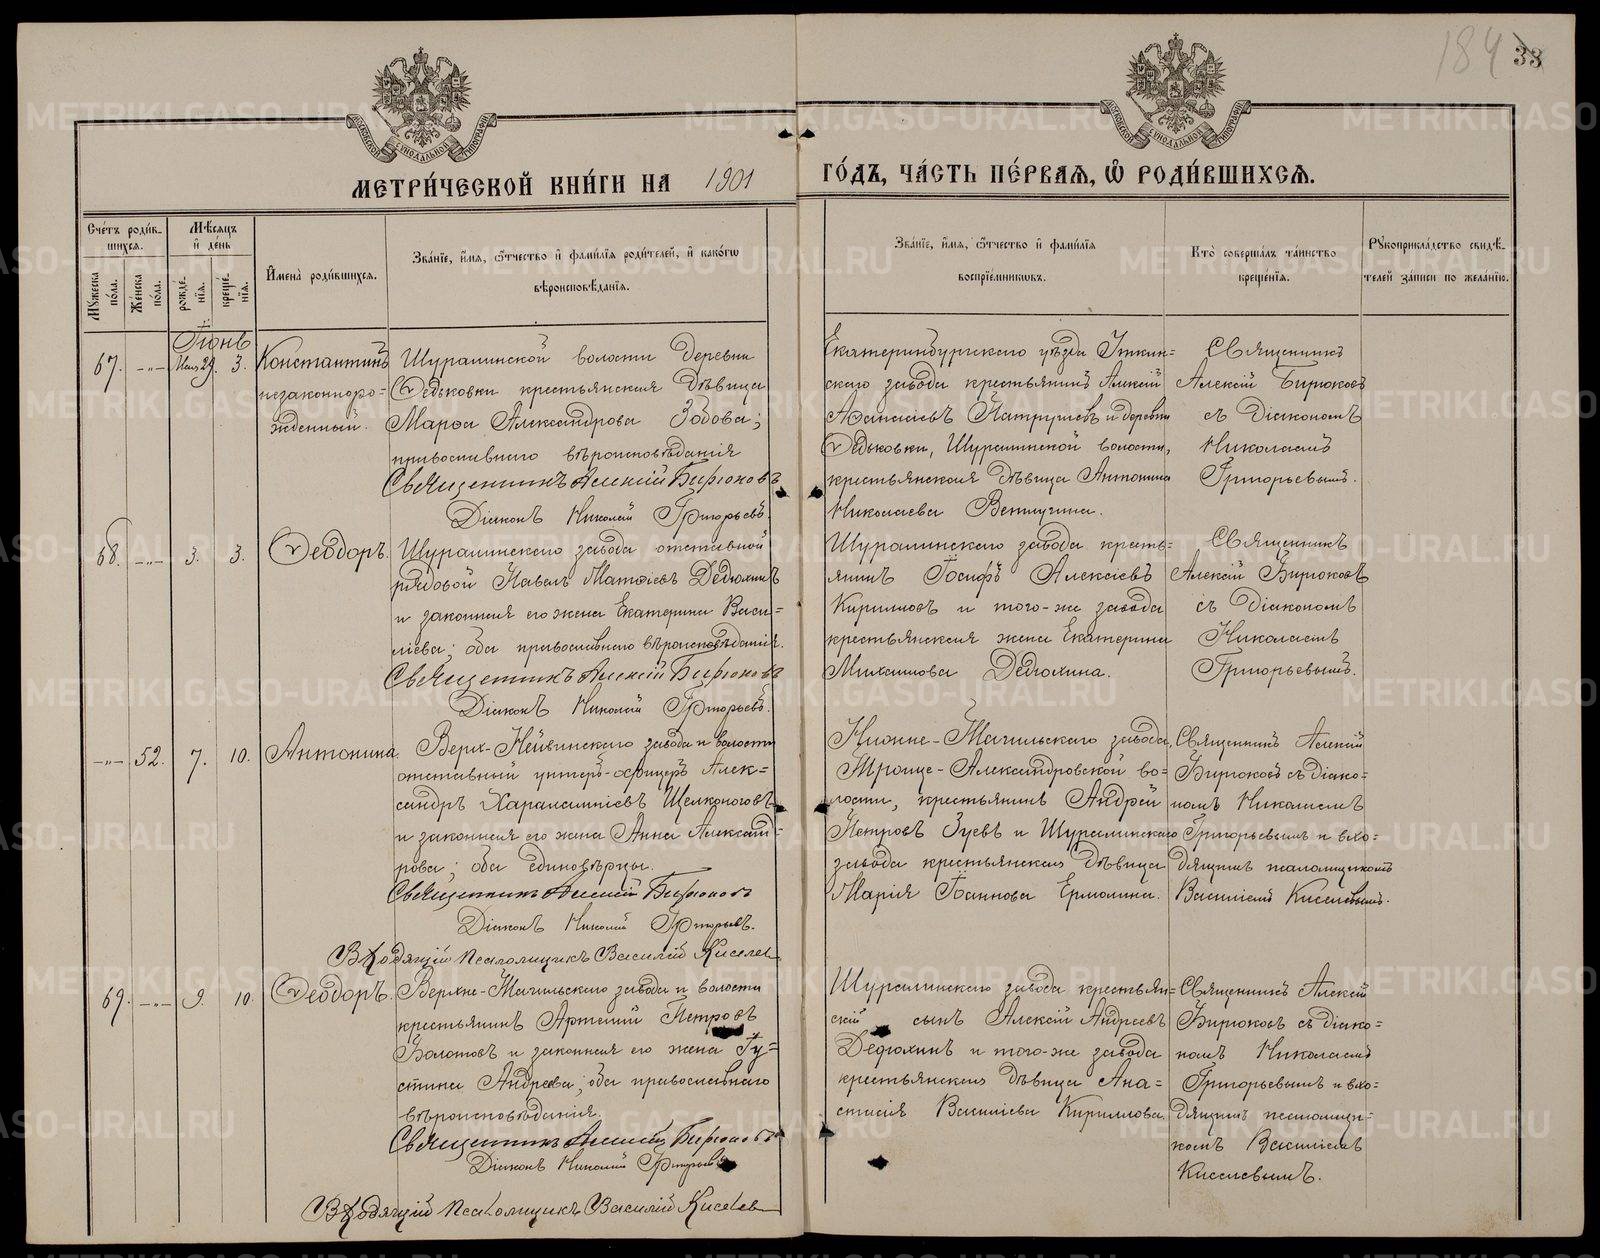 184 33
МОСКОВСКОЙ СѴНОДАЛЬНОЙ ТИПОГРАФІИ
МОСКОВСКОЙ СѴНОДАЛЬНОЙ ТИПОГРАФІИ
МЕТРИ́ЧЕСКОЙ КНИ́ГИ НА 1901
ГО́ДЪ, ЧА́СТЬ ПЕ́РВАѦ, Ѿ РОДИ́ВШИХСѦ.
Сче́тъ роди́в-
шихсѧ.
Мѣ́сѧцъ
и҆ де́нь
Мꙋ́жеска по́ла.
Же́нска по́ла.
рожде́-
нїѧ.
креще́-
нїѧ.
И҆мена̀ роди́вшихсѧ.
Зва́нїе, и҆́мѧ, ѻ҆́тчество и҆ фами́лїѧ роди́телей, и҆ како́гѡ
вѣроисповѣ́данїѧ.
Зва́нїе, и҆́мѧ, ѻ҆́тчество и҆ фами́лїѧ
воспрїе́мникѡвъ.
Кто̀ соверша́лъ та́инство
креще́нїѧ.
Рꙋкоприкла́дство свидѣ́-
телей за́писи по жела́нїю.
Іюнь
67. -„- Мая 29. 3. Константинъ
незаконноро-
жденный.
Шуралинской волости деревни
Ѳедьковки крестьянская дѣвица
Марѳа Александрова Зобова;
православнаго вѣроисповѣданія
Священникъ Алексій Бирюковъ
Діаконъ Николай Григорьевъ.
Екатеринбургскаго уѣзда Уткин-
скаго завода крестьянинъ Алексій
Аѳанасьевъ Патрушевъ и деревни
Ѳедьковки, Шуралинской волости,
крестьянская дѣвица Антонина
Николаева
Священникъ
Алексій Бирюковъ
съ Діакономъ
Николаемъ
Григорьевымъ.
68. -„- 3. 3. Ѳеодоръ.
Шуралинскаго завода отставной
рядовой Павелъ Матѳіевъ Дедюхинъ
и законная его жена Екатерина Васи-
ліева; оба православнаго вѣроисповѣданія.
Священникъ Алексій Бирюковъ
Діаконъ Николай Григорьевъ.
Шуралинскаго завода кресть-
янинъ Іосифъ Алексіевъ
Кириловъ и того-же завода
крестьянская жена Екатерина
Михаилова Дедюхина.
Священникъ
Алексій Бирюковъ
съ Діакономъ
Николаемъ
Григорьевымъ.
-„- 52. 7. 10. Антонина.
Верх-Нейвинскаго завода и волости
отставный унтеръ-офицеръ Алек-
сандръ Харалампіевъ Щелконоговъ
и законная его жена Анна Александ-
рова; оба единовѣрцы.
Священникъ Алексій Бирюковъ
Діаконъ Николай Григорьевъ.
Входящій Псаломщикъ Василій Киселев
Нижне-Тагильскаго завода,
Троице-Александровской во-
лости, крестьянинъ Андрей
Петровъ Зуевъ и Шуралинскаго
завода крестьянская дѣвица
Марія Іоаннова Ермолина.
Священникъ Алексій
Бирюковъ съ діако-
номъ Николаемъ
Григорьевымъ и вхо-
дящимъ псаломщикомъ
Василіемъ Киселевымъ.
69. -„- 9. 10. Ѳеодоръ.
Верхне-Тагильскаго завода и волости
крестьянинъ Артемій Петровъ
Болотовъ и законная его жена Іу-
стина Андреева; оба православнаго
вѣроисповѣданія.
Священникъ Алексій Бирюковъ
Діаконъ Николай Григорьевъ
Входящій Псаломщикъ Василій Киселев
Шуралинскаго завода крестьян-
скій сынъ Алексій Андреевъ
Дедюхинъ и того-же завода
крестьянская дѣвица Ана-
стасія Василіева Кириллова.
Священникъ Алексій
Бирюковъ съ діако-
номъ Николаемъ
Григорьевымъ и вхо-
дящимъ псаломщи-
комъ Василіемъ
Киселевымъ.
METRIKI.GASO-URAL.RU